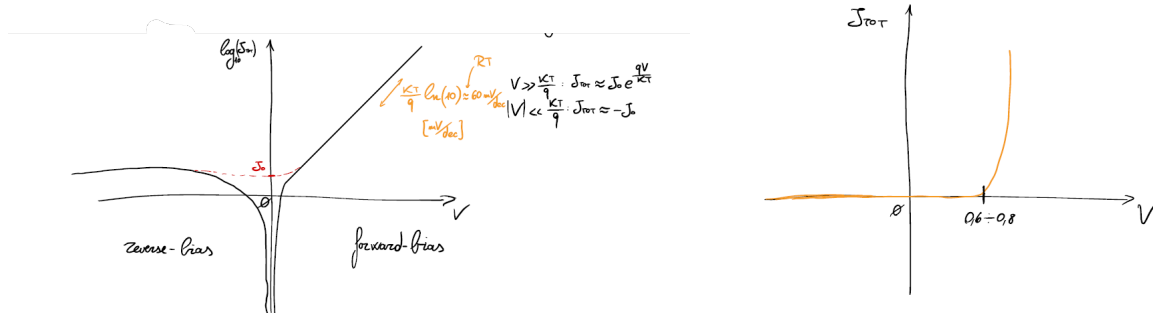 log₁₀(J_TOT)
RT
KT/q ln(10) ≈ 60 mV/dec
[mV/dec]
V >> KT/q : J_TOT ≈ J₀ e^(qV/KT)
|V| << KT/q : J_TOT ≈ -J₀
J₀
Ø
V
reverse-bias
forward-bias
J_TOT
Ø
0,6÷0,8
V